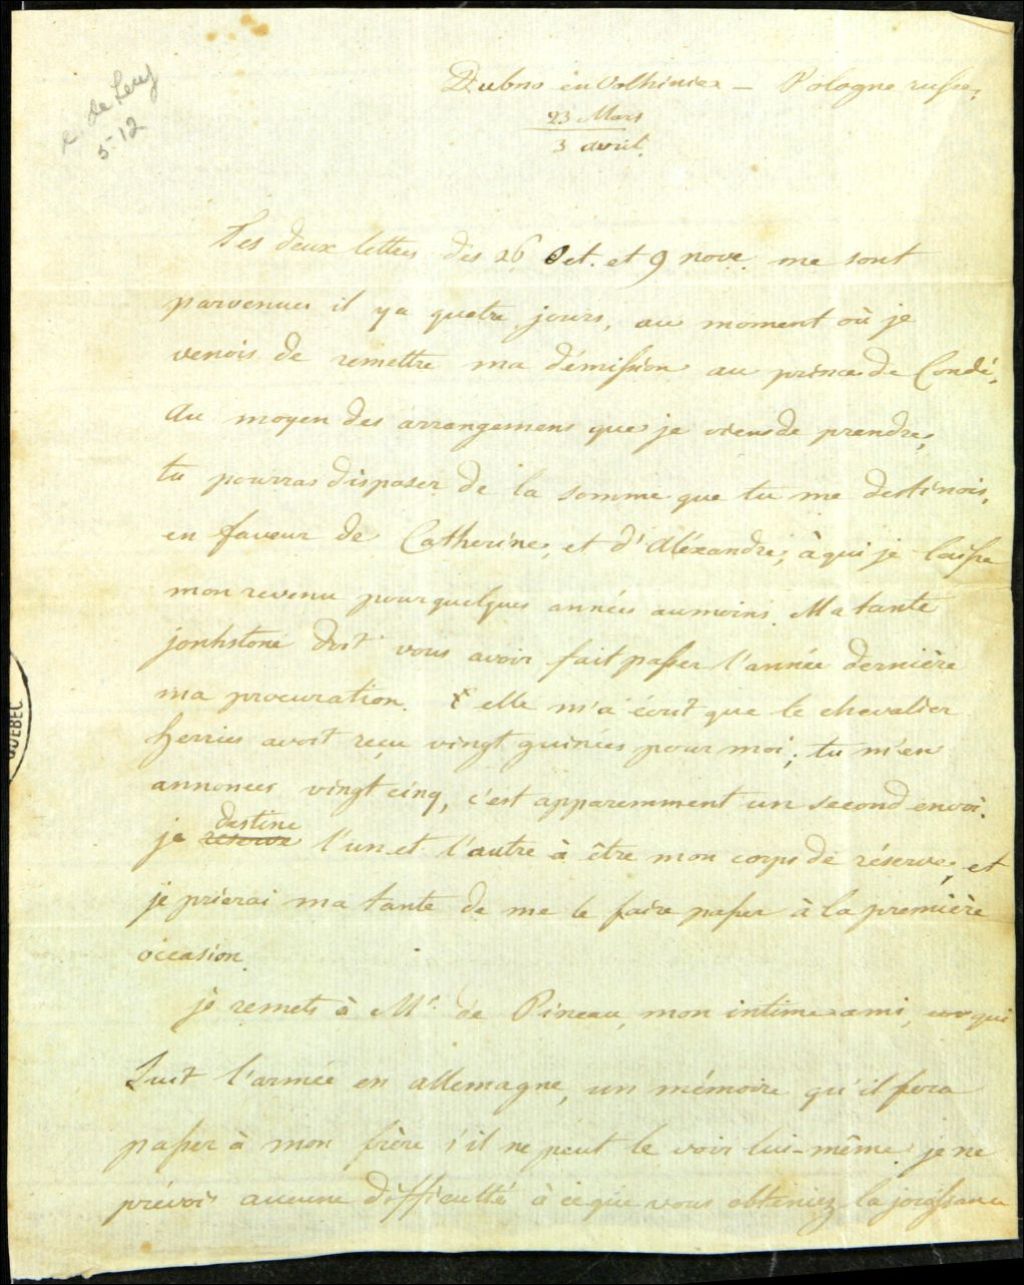 de Lery
5-12
Dubno en Volhinie - Pologne russe,
23 Mars
3 avril.
Tes deux lettres des 26 Oct. et 9 nove. me sont
parvenues il y a quatre jours, au moment où je
venois de remettre ma démission au prince de Condé.
Au moyen des arrangemens que je viens de prendre,
tu pourras disposer de la somme que tu me destinois,
en faveur de Catherine, et d'Aléxandre, à qui je laisse
mon revenu pour quelques années au moins. Ma tante
jonhstone doit vous avoir fait passer l'année dernière
ma procuration. elle m'a écrit que le chevalier
herries avoit reçu vingt guinées pour moi; tu m'en
annonces vingt cinq, c'est apparemment un second envoi.
je reserve destine l'un et l'autre à être mon corps de réserve, et
je prierai ma tante de me le faire passer à la première
occasion.
je remets à Mr. de Pineau, mon intime ami, qui
suit l'armée en allemagne, un mémoire qu'il fera
passer à mon frère s'il ne peut le voir lui-même. je ne
prévois aucune difficulté à ce que vous obteniez la jouissance
QUÉBEC